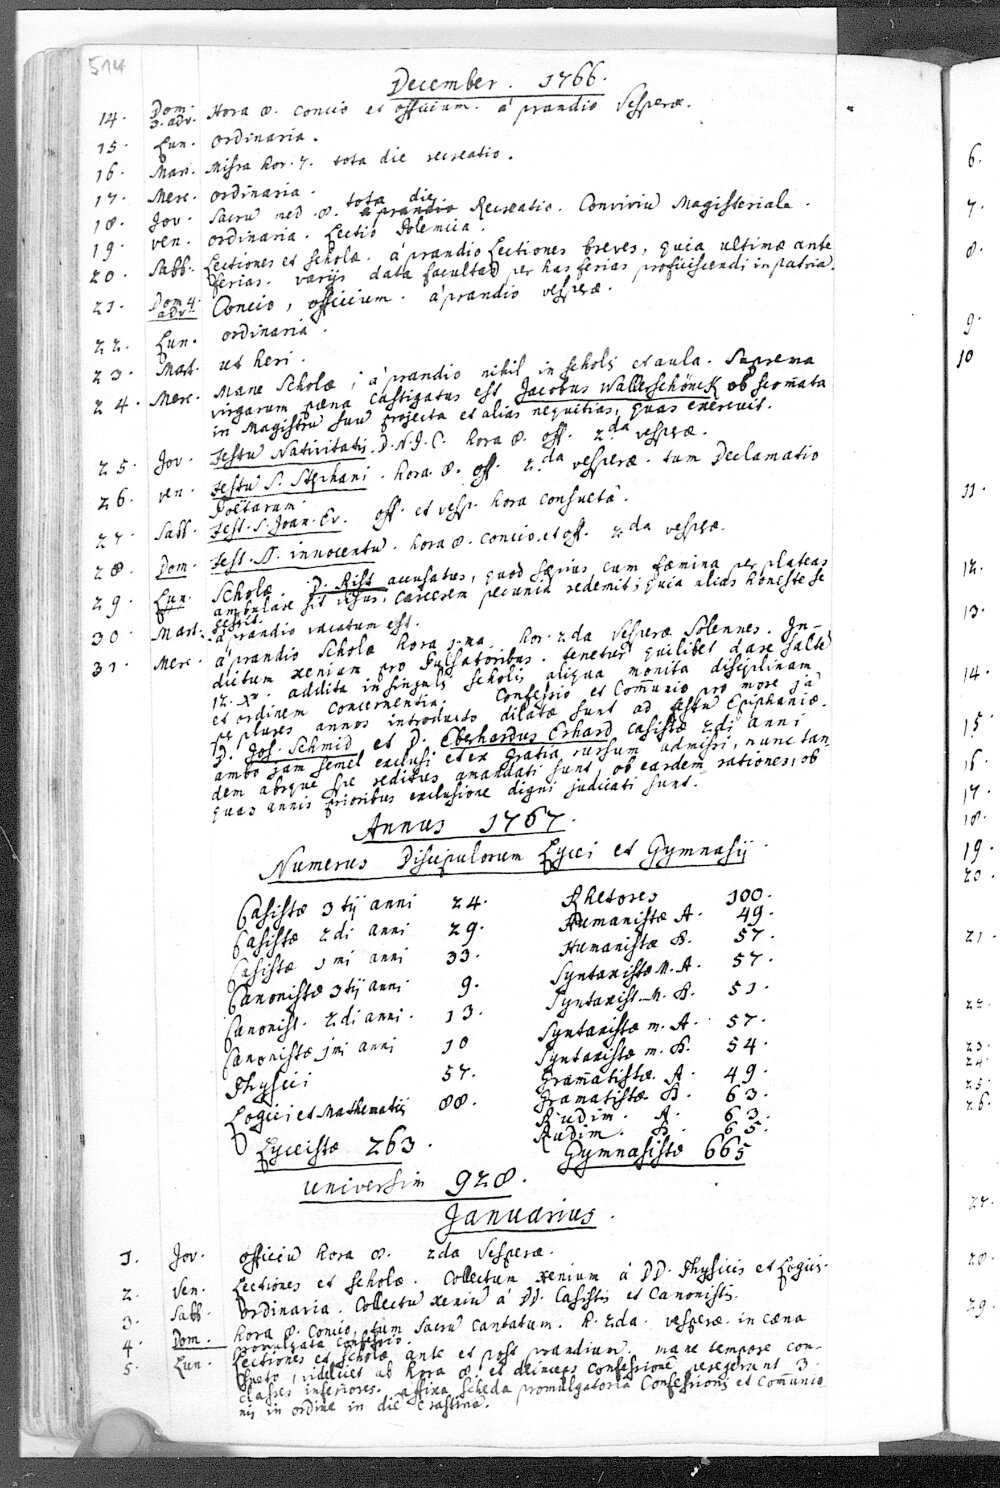 514
December. 1766.
14. Dom. 3. adv. Hora 8. Concio et officium. à prandio Vesperæ.
15. Lun. ordinaria.
16. Mart. Missa hor. 7. tota die recreatio.
17. Merc. ordinaria.
18. Jov. Sacrũ med 8. tota die Recreatio. Conviviũ Magisteriale.
19. Ven. ordinaria. Lectio Polemica.
20. Sabb. Lectiones et Scholæ. à prandio Lectiones breves, quia ultimæ ante
ferias. varijs data facultas per has ferias proficiscendi in patria.
21. Dom 4. adv. Concio, officium. à prandio vesperæ.
22. Lun. ordinaria.
23. Mart. ut heri.
24. Merc. Mane Scholæ; à prandio nihil in scholis et aula. Suprema
virgarum pœna castigatus est Jacobus Wallerschönck ob scom̃ata
in Magistrũ suũ projecta et alias nequitias, quas exercuit.
25. Jov. Festũ Nativitatis D. N. J. C. hora 8. off. 2.da vesperæ.
26. Ven. Festũ S. Stephani. hora 8. off. 2.da vesperæ. tum Declamatio
Poëtarum.
27. Sabb. Fest. S. Joan. Ev. off. et vesp. hora consuetâ.
28. Dom. Fest. SS. innocentũ. hora 8. concio et off. 2da vesperæ.
29. Lun. Scholæ. D. Rist accusatus, quod sæpius cum fœmina per plateas
ambulare sit visus, carcerem pecunia redemit; quia alias honeste se
gessit.
30. Mart. à prandio vacatum est.
31. Merc. à prandio Scholæ hora 1.ma hor. 2.da Vesperæ Solennes. In-
dictum xenium pro Pulsatoribus. tenetur quilibet dare saltẽ
12. xr. addita in singulis scholis aliqua monita disciplinam
et ordinem concernentia. Confessio et Com̃unio pro more jã
per plures annos introducto dilatæ sunt ad festũ Epiphaniæ.
D. Jos. Schmid et D. Eberhardus Erhard casistæ 2di anni
ambo jam semel exclusi et ex gratia rursum admissi, nunc tan
dem absque spe reditus amandati sunt, ob easdem rationes, ob
quas annis prioribus exclusione digni judicati sunt.
Annus 1767.
Numerus Discipulorum Lycei et Gymnasij
Casistæ 3tij anni 24.
Casistæ 2di anni 29.
Casistæ 1mi anni 33.
Canonistæ 3tij anni 9.
Canonist. 2di anni. 13.
Canonistæ 1mi anni 10
Physici 57.
Logici et Mathematici 88.
Lyceistæ 263.
Rhetores 100.
Humanistæ A. 49.
Humanistæ B. 57.
Syntaxistæ M. A. 57.
Syntaxist. M. B. 51.
Syntaxistæ m. A. 57.
Syntaxistæ m. B. 54.
Gram̃atistæ. A. 49.
Gramatistæ B. 63.
Rudim. A. 63.
Rudim. B. 65.
Gymnasistæ 665
universim 928.
Januarius.
1. Jov. officiũ hora 8. 2da Vesperæ.
2. Ven. Lectiones et scholæ. Collectum xenium à DD. Physicis et Logicis.
3. Sabb. ordinaria. Collectũ xeniũ à DD. Casistis et Canonistis.
4. Dom. hora 8. Concio, tum Sacrũ cantatum. h. 2da. vesperæ. in cæna
promulgata confessio.
5. Lun. Lectiones et scholæ ante et post prandium. mane tempore con-
sueto, videlicet ab hora 8 et deinceps confessione peregerunt 3.
classes inferiores. affixa scheda promulgatoria Confessionis et Com̃unio
nis in ordine in die crastina.
6.
7.
8.
9.
10
11.
12.
13.
14.
15.
16.
17.
18.
19.
20.
21.
22.
23.
24.
25.
26.
27.
28.
29.